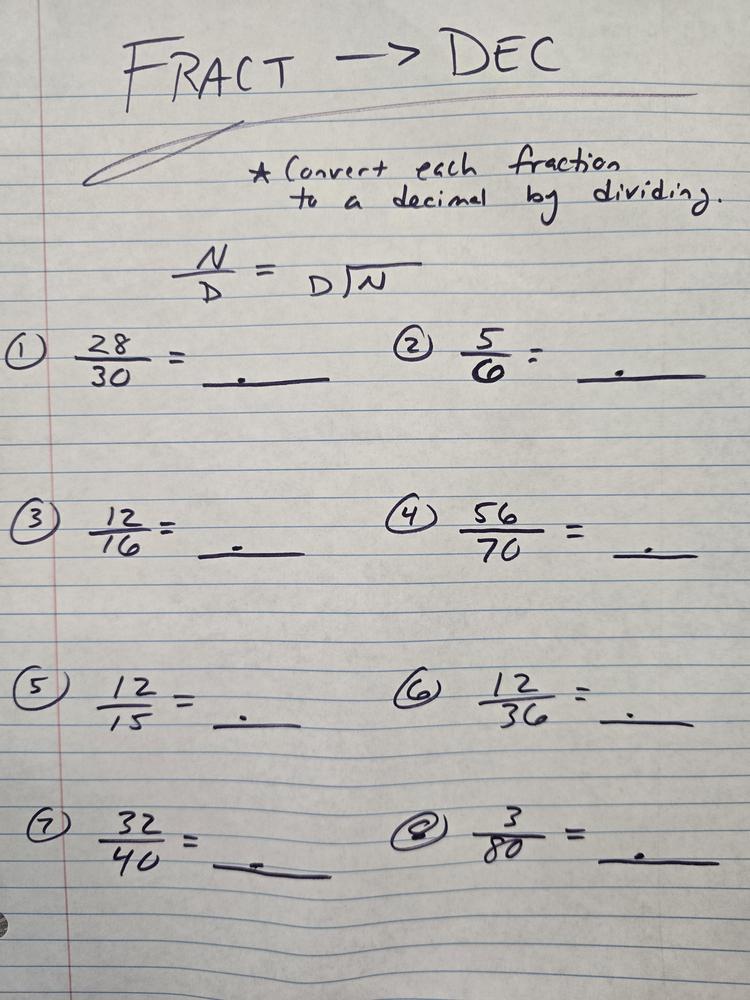 FRACT → DEC
* Convert each fraction
to a decimal by dividing.
N/D = D√N
① 28/30 = __.__ ② 5/6 = __.__
③ 12/16 = __.__ ④ 56/70 = __.__
⑤ 12/15 = __.__ ⑥ 12/36 = __.__
⑦ 32/40 = __.__ ⑧ 3/80 = __.__